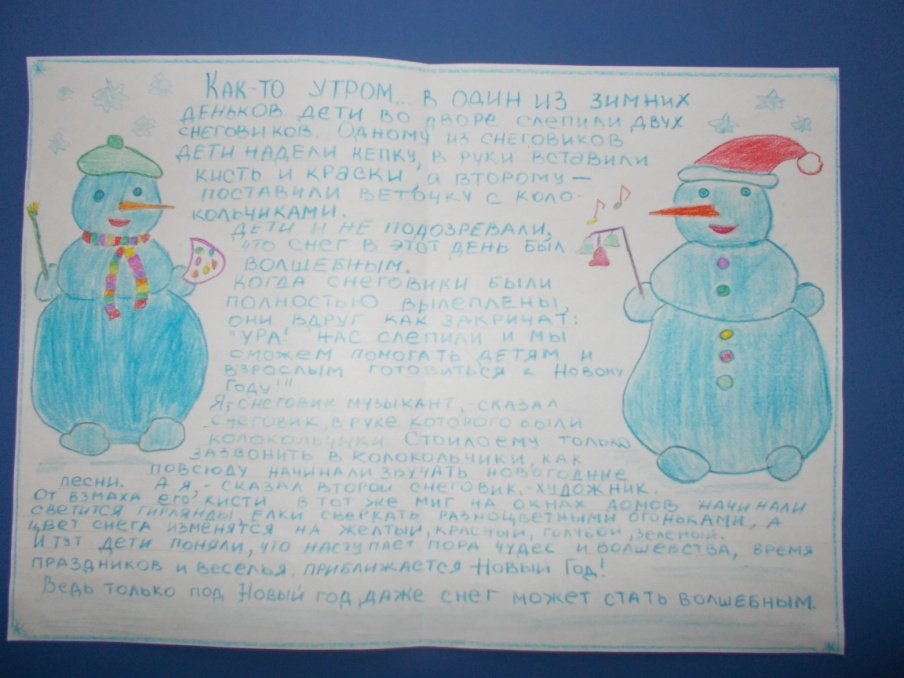 КАК-ТО УТРОМ... В ОДИН ИЗ ЗИМНИХ
ДЕНЬКОВ ДЕТИ ВО ДВОРЕ СЛЕПИЛИ ДВУХ
СНЕГОВИКОВ. ОДНОМУ ИЗ СНЕГОВИКОВ
ДЕТИ НАДЕЛИ КЕПКУ, В РУКИ ВСТАВИЛИ
КИСТЬ И КРАСКИ, А ВТОРОМУ –
ПОСТАВИЛИ ВЕТОЧКУ С КОЛО-
КОЛЬЧИКАМИ.
ДЕТИ И НЕ ПОДОЗРЕВАЛИ,
ЧТО СНЕГ В ЭТОТ ДЕНЬ БЫЛ
ВОЛШЕБНЫМ.
КОГДА СНЕГОВИКИ БЫЛИ
ПОЛНОСТЬЮ ВЫЛЕПЛЕНЫ,
ОНИ ВДРУГ КАК ЗАКРИЧАТ:
"УРА! НАС СЛЕПИЛИ И МЫ
СМОЖЕМ ПОМОГАТЬ ДЕТЯМ И
ВЗРОСЛЫМ ГОТОВИТЬСЯ К НОВОМУ
ГОДУ!"
Я, СНЕГОВИК МУЗЫКАНТ, - СКАЗАЛ
СНЕГОВИК, В РУКЕ КОТОРОГО БЫЛИ
КОЛОКОЛЬЧИКИ. СТОИЛО ЕМУ ТОЛЬКО
ЗАЗВОНИТЬ В КОЛОКОЛЬЧИКИ, КАК
ПОВСЮДУ НАЧИНАЛИ ЗВУЧАТЬ НОВОГОДНИЕ
ПЕСНИ. А Я, - СКАЗАЛ ВТОРОЙ СНЕГОВИК, - ХУДОЖНИК.
ОТ ВЗМАХА ЕГО КИСТИ В ТОТ ЖЕ МИГ НА ОКНАХ ДОМОВ НАЧИНАЛИ
СВЕТИТСЯ ГИРЛЯНДЫ, ЕЛКИ СВЕРКАТЬ РАЗНОЦВЕТНЫМИ ОГОНЬКАМИ, А
ЦВЕТ СНЕГА ИЗМЕНЯТСЯ НА ЖЕЛТЫЙ, КРАСНЫЙ, ГОЛУБОЙ, ЗЕЛЕНЫЙ.
И ТУТ ДЕТИ ПОНЯЛИ, ЧТО НАСТУПАЕТ ПОРА ЧУДЕС И ВОЛШЕБСТВА, ВРЕМЯ
ПРАЗДНИКОВ И ВЕСЕЛЬЯ. ПРИБЛИЖАЕТСЯ НОВЫЙ ГОД!
ВЕДЬ ТОЛЬКО ПОД НОВЫЙ ГОД, ДАЖЕ СНЕГ МОЖЕТ СТАТЬ ВОЛШЕБНЫМ.